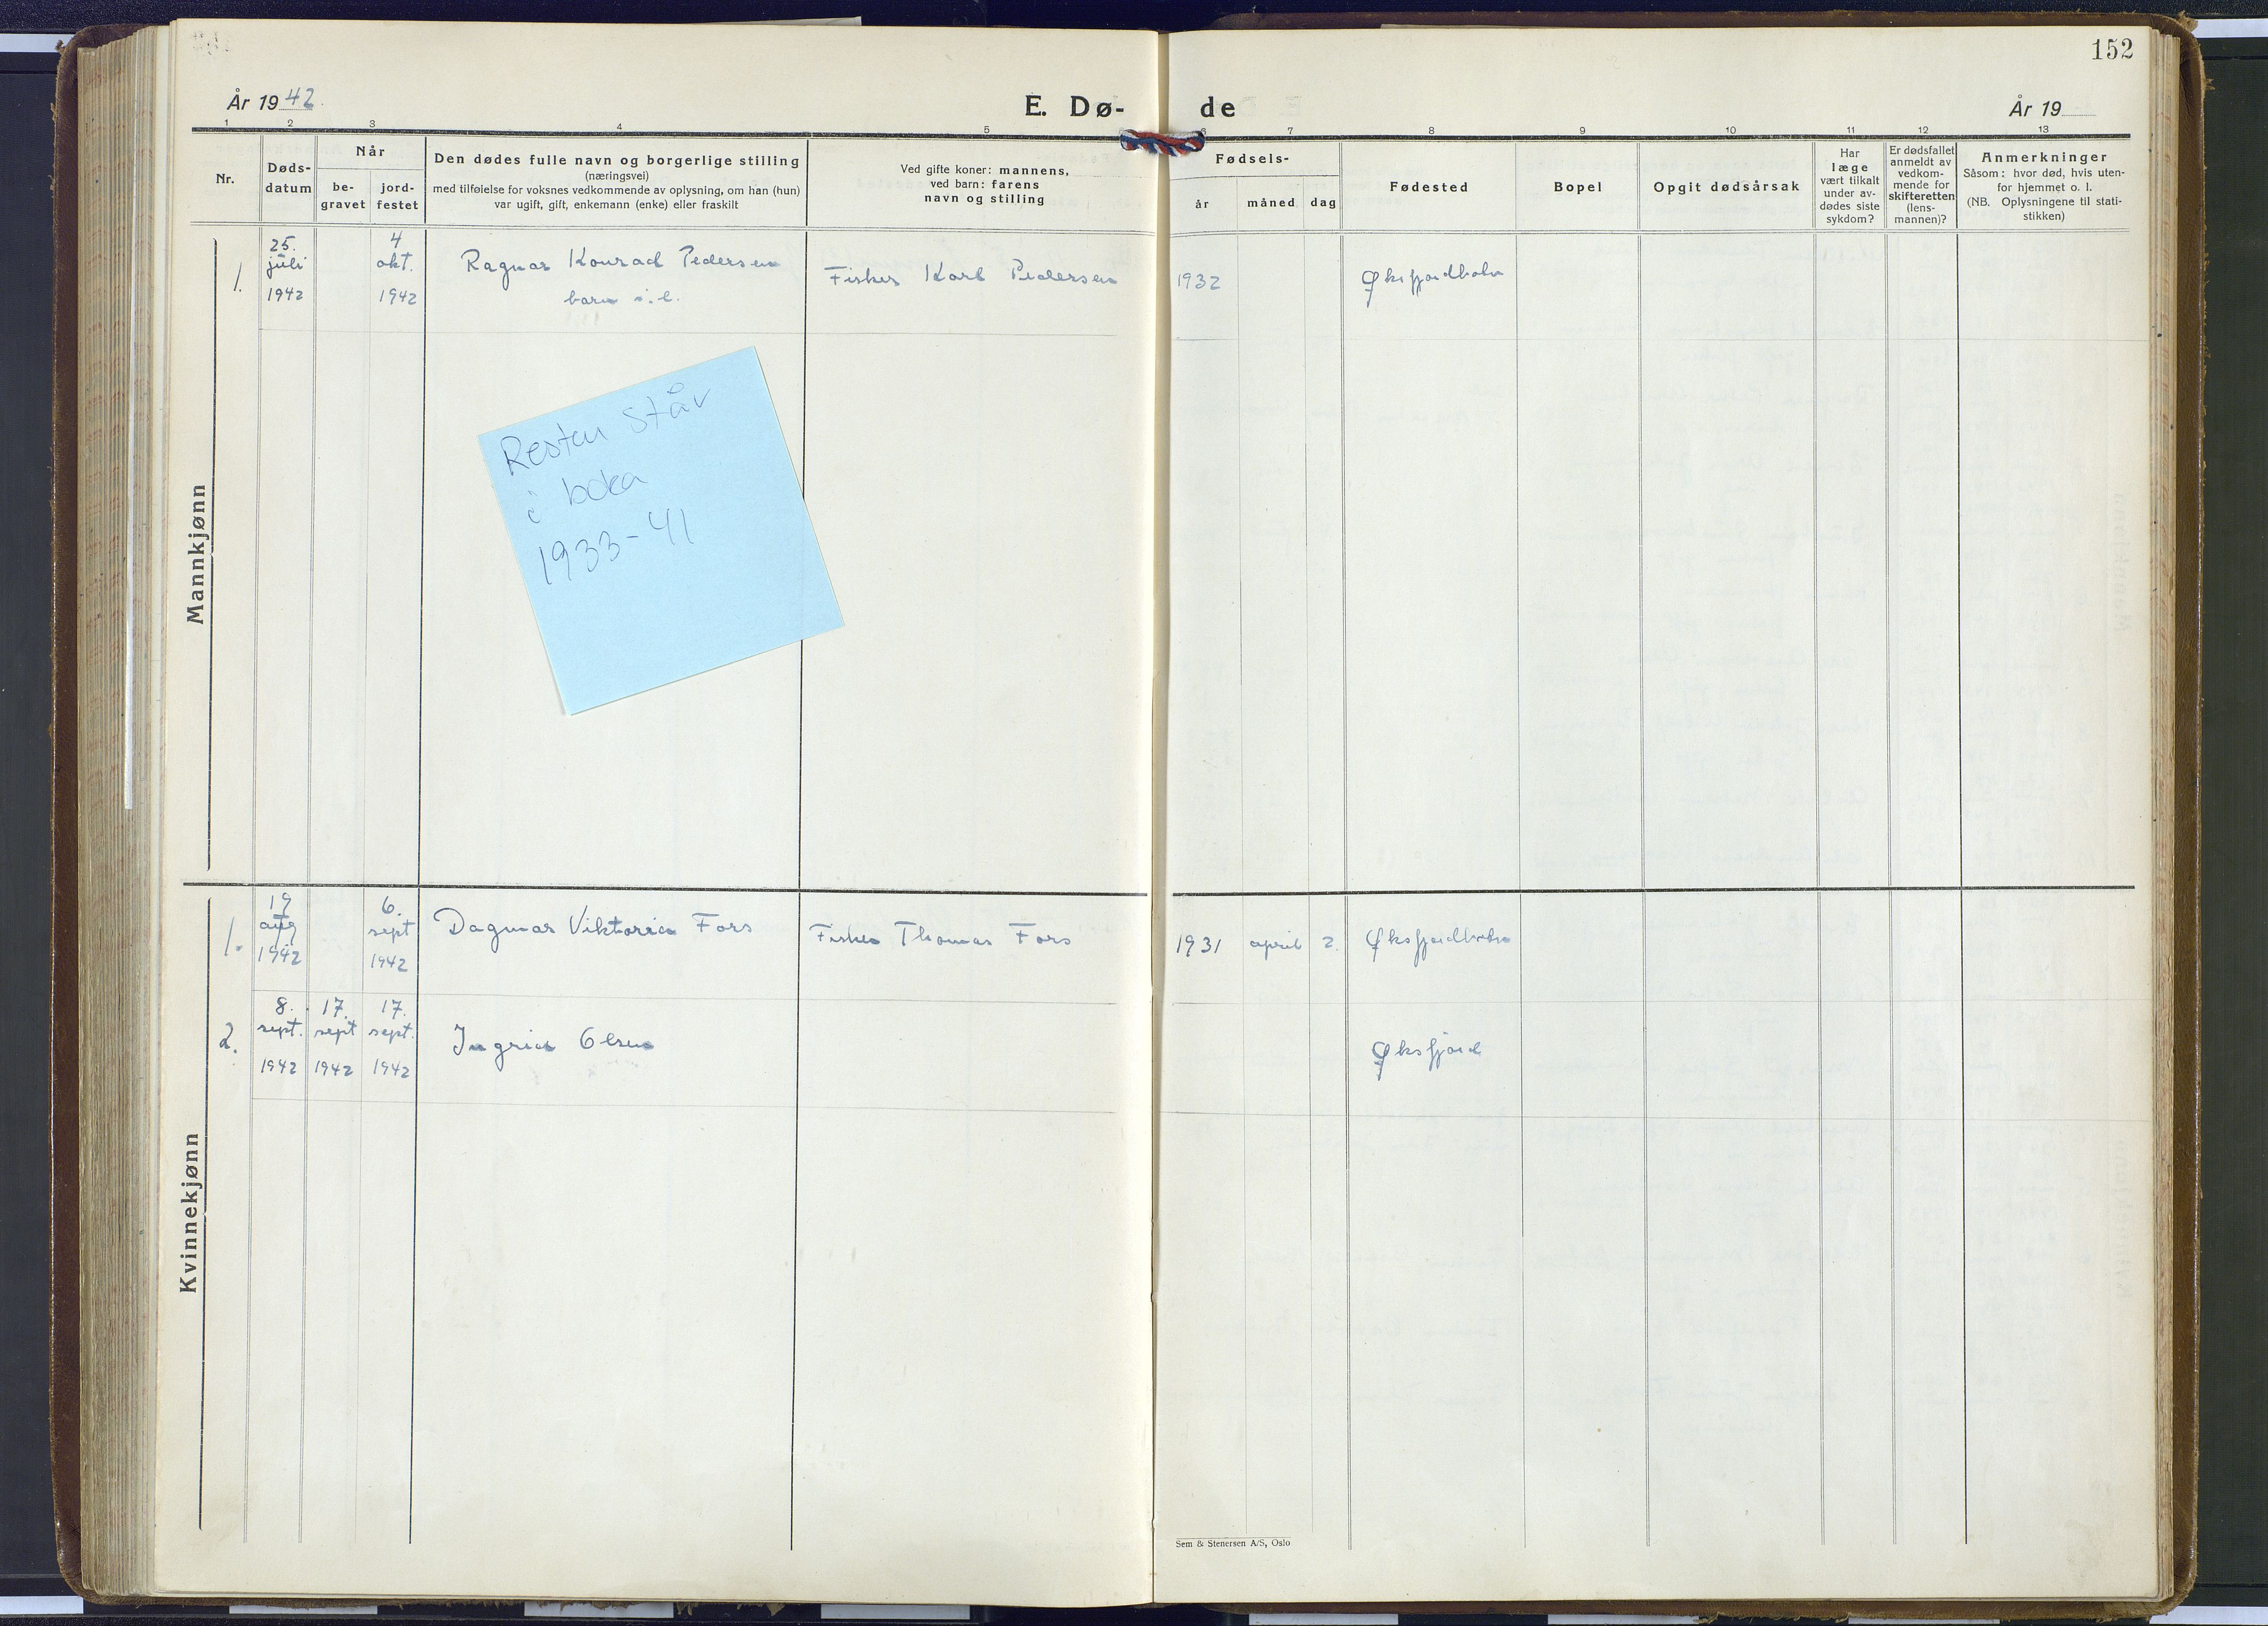 152
År 1942.
E. Dø-
de
År 19
1 2 3 4 5 6 7 8 9 10 11 12 13
Nr.
Døds-
datum
Når
be-
gravet
jord-
festet
Den dødes fulle navn og borgerlige stilling
(næringsvei)
med tilføielse for voksnes vedkommende av oplysning, om han (hun)
var ugift, gift, enkemann (enke) eller fraskilt
Ved gifte koner: mannens,
ved barn: farens
navn og stilling
Fødsels-
år måned dag
Fødested
Bopel
Opgit dødsårsak
Har
læge
vært tilkalt
under av-
dødes siste
sykdom?
Er dødsfallet
anmeldt av
vedkom-
mende for
skifteretten
(lens-
mannen)?
Anmerkninger
Såsom: hvor død, hvis uten-
for hjemmet o. l.
(NB. Oplysningene til stati-
stikken)
Mannkjønn
1.
25.
juli
1942
4
okt.
1942
Ragnar Konrad Pedersen
barn
Fisker Karl Pedersen
1932
Øksfjordbotn
Resten står
i boka
1933-41
Kvinnekjønn
1.
19
aug
1942
6.
sept
1942
Dagmar Viktoria Fors
Fisker Thomas Fors
1931 april 2.
Øksfjordbotn
2.
8.
sept.
1942
17.
sept
1942
17.
sept.
1942
Ingrid Olsen
Øksfjord
Sem & Stenersen A/S, Oslo